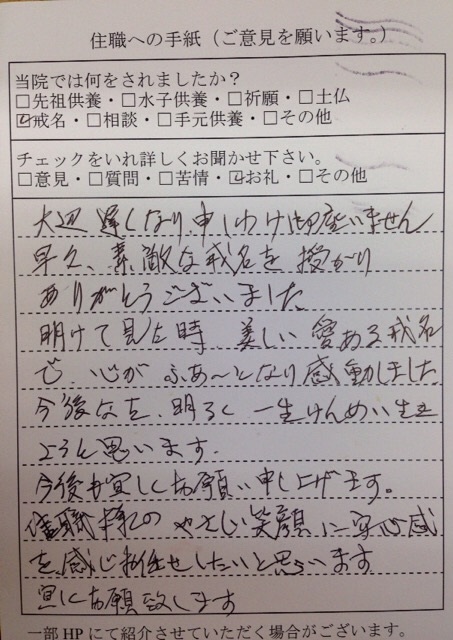 住職への手紙（ご意見を願います。）
当院では何をされましたか？
□先祖供養・□水子供養・□祈願・□土仏
☑戒名・□相談・□手元供養・□その他
チェックをいれ詳しくお聞かせ下さい。
□意見・□質問・□苦情・☑お礼・□その他
大辺遅しなり、申しわけ御座いません
早久、素敵な戒名を授かり
ありがとうございました
明けて見た時 美しい愛ある戒名
で、心がふあ〜となり感動しました
今後なを、明るく一生けんめい生き
ようと思います.
今後も宜しくお願い申し上げます。
職様のやさしい笑顔に安心感
を感じお任せしたいと思います
宜しくお願致します
一部HPにて紹介させていただく場合がございます。